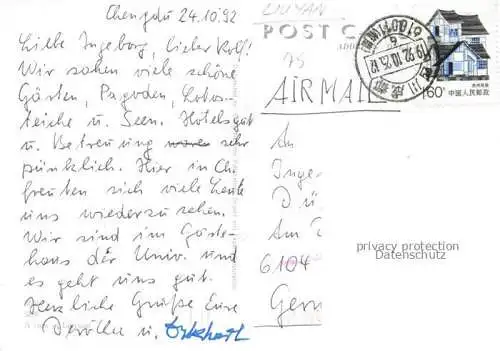 Chengdu 24.10.92
Liebe Ingeborg, lieber Rolf!
Wir sahen viele schöne
Gärten, Pagoden, Lotos-
teiche u. Seen. Hotels gut
u. Betreuung sehr
pünklich. Hier in Ch.
freuten sich viele Leute
uns wiederzusehen.
Wir sind im Gäste-
haus der Univ. und
es geht uns gut.
Herzliche Grüße Eure
u.
POST C
AIRMAIL
An
Inge
Dü
Am
6104
Germ
60
中国人民邮政
privacy protection
Datenschutz